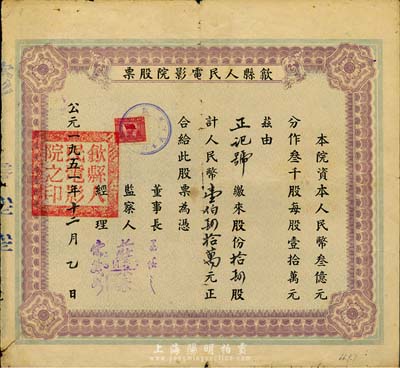 歙縣人民電影院股票
本院資本人民幣叁億元
分作叁千股每股壹拾萬元
茲由
正記號 繳來股份拾捌股
計人民幣壹佰捌拾萬元正
合給此股票為憑
董事長
監察人
經理
公元一九五一年十二月乙日
歙縣人民電影院之印
上海陽明拍賣